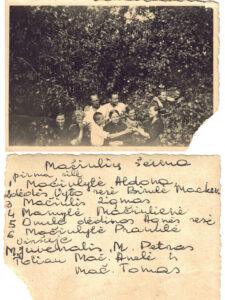 Mačiulių šeima
pirma eilė
1 Mačiulytė Aldona
dėdės Vyto sesė Birutė Macken
3 Mačiulis Zigmas
4 Mamytė Mačiulienė
5 Onutė dėdinos Agnės sesė
6 Mačiulytė Pranutė
Viršuje
M. Juventalis, M. Petras
Toliau Mač. Anelė ir
Mač. Tomas